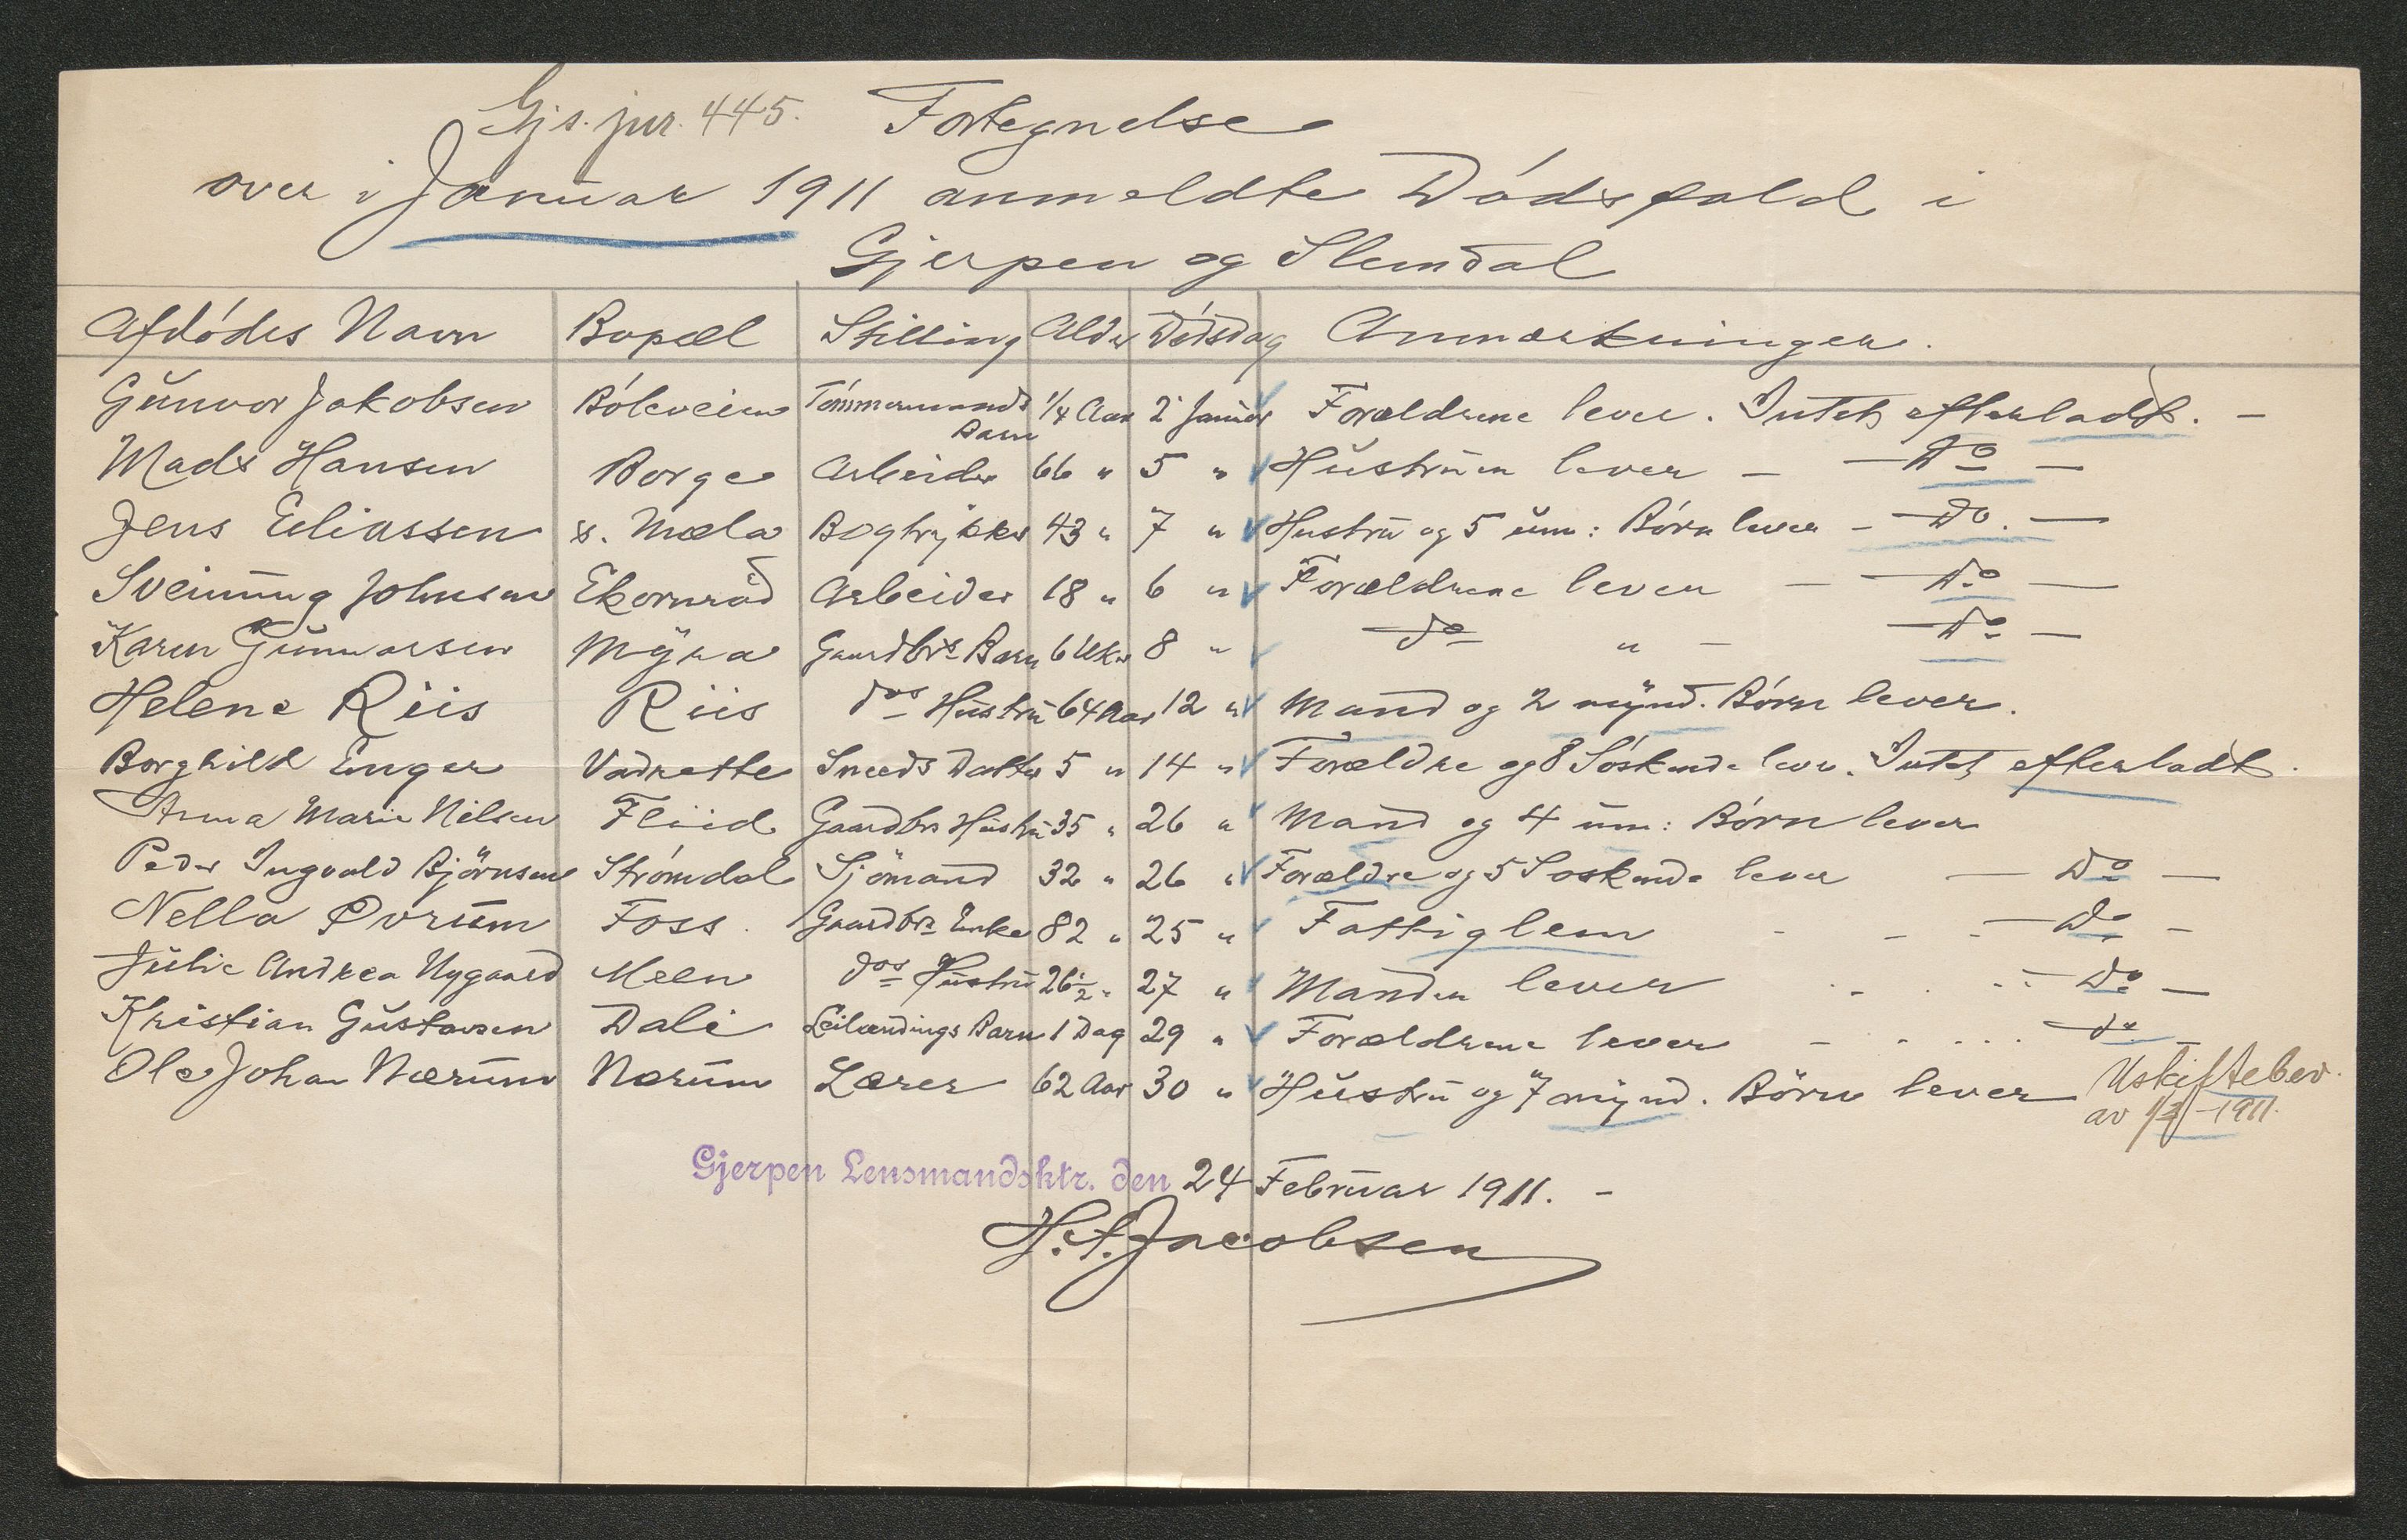 Gjs. jnr. 445. Fortegnelse
over i Januar 1911 anmeldte Dødsfald i
Gjerpen og Slemdal
Afdødes Navn Bopæl Stilling Alder Dødsdag Anmærkninger.
Gunvor Jakobsen Bøleveien Tømmermands Barn 1/4 Aar 2 Januar Forældrene lever. Intet efterladt. —
Mads Hansen Borge Arbeider 66 " 5 " Hustruen lever — — Do —
Jens Eeliassen s. Mæla Bogtrykker 43 " 7 " Hustru og 5 um: Børn lever — Do. —
Sveinung Johnsen Ekornrød Arbeider 18 " 6 " Forældrene lever — — Do —
Karen Gunnarsen Myra Gaardbrs Barn 6 Uker 8 " do " — — Do —
Helene Riis Riis dos Hustru 64 Aar 12 " Mand og 2 mynd. Børn lever.
Borghild Enger Vadrette Smeds Datter 5 " 14 " Forældre og 8 Søskende lever. Intet efterladt.
Anna Marie Nilsen Fliid Gaardbrs Hustru 35 " 26 " Mand og 4 um: Børn lever
Peder Ingvald Bjørnsen Strømdal Sjømand 32 " 26 " Forældre og 5 Søskende lever — Do —
Nella Ovrum Foss. Gaardbrs Enke 82 " 25 " Fattiglem - - - — Do —
Julie Andrea Nygaard Meen dos Hustru 26 1/2 " 27 " Manden lever — Do —
Kristian Gustavsen Dali Leilændings Barn 1 Dag 29 " Forældrene lever — do. —
Ole Johan Nærum Nærum Lærer 62 Aar 30 " Hustru og 7 mynd. Børn lever Uskiftebev.
av 1/3 - 1911.
Gjerpen Lensmandsktr. den 24 Februar 1911. —
H. A. Jacobsen